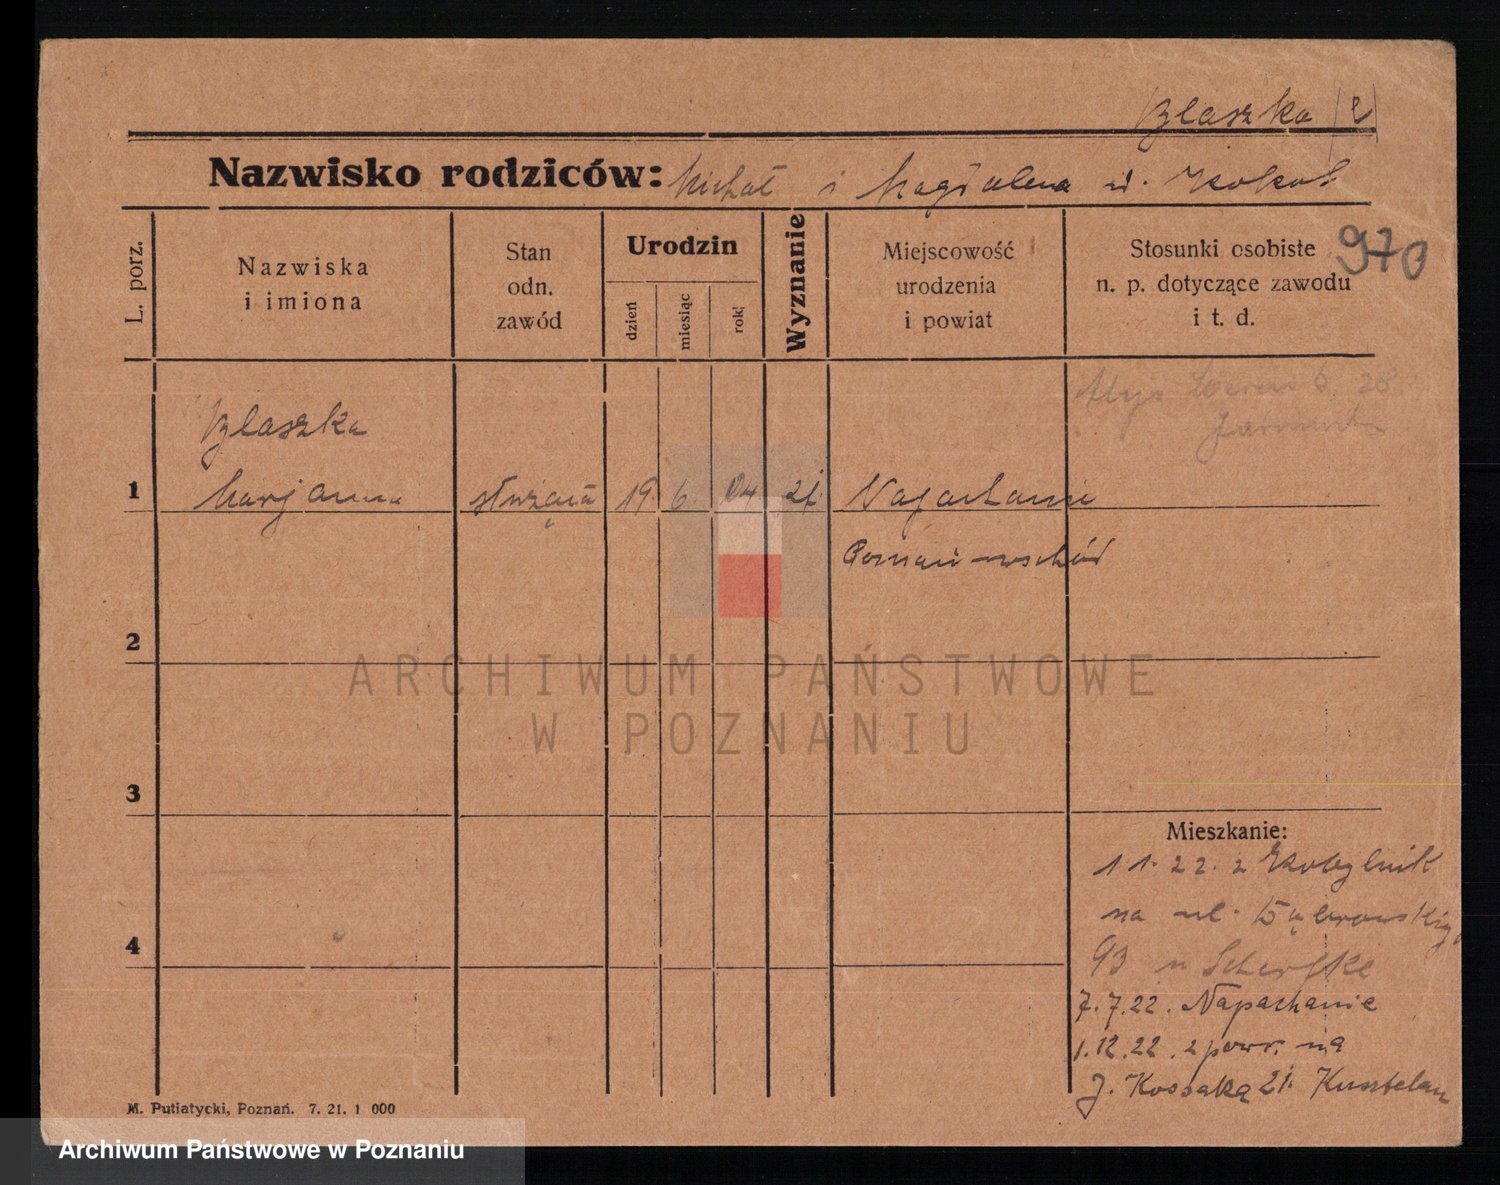 Błaszka
Nazwisko rodziców: Michał i Magdalena z. Kokot
970
L. porz.
Nazwiska
i imiona
Stan
odn.
zawód
Urodzin
dzień
miesiąc
rok
Wyznanie
Miejscowość
urodzenia
i powiat
Stosunki osobiste
n. p. dotyczące zawodu
i t. d.
28
Błaszka
1 Marjanna służąca 19. 6. 04 Napachanie
Poznań-wschód
2
3
4
ARCHIWUM PAŃSTWOWE
W POZNANIU
Mieszkanie:
1 1. 22. z Kobylnik
na ul. Dąbrowskiego
93 u Scherfke
7.7.22. Napachanie
1.12.22. z powr. na
J. Kossaka 21. Kusztelan
M. Putiatycki, Poznań. 7. 21. 1 000
Archiwum Państwowe w Poznaniu